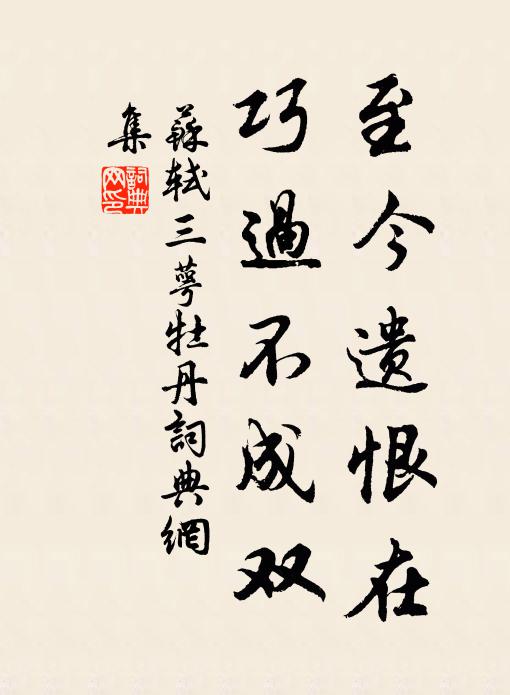 至今遗恨在
巧過不成双
蘇軾三萼牡丹詞典網
集
詞典網印